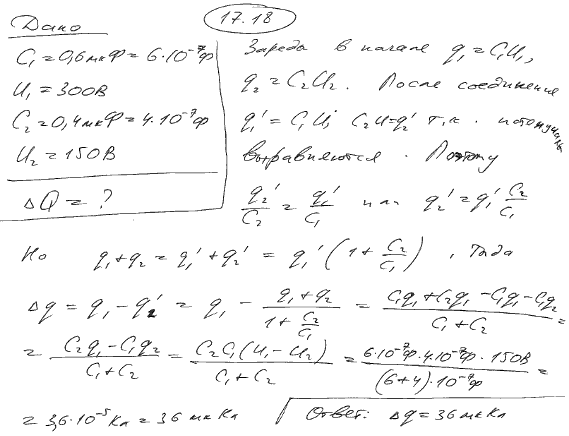 17.18
Дано
C₁ = 0,6 мкФ = 6·10⁻⁷ Ф
U₁ = 300 В
C₂ = 0,4 мкФ = 4·10⁻⁷ Ф
U₂ = 150 В
ΔQ = ?
Заряды в начале q₁ = C₁U₁,
q₂ = C₂U₂. После соединения
q₁' = C₁U; C₂U = q₂' т.к. потенциалы
выравняются. Поэтому
q₂'/C₂ = q₁'/C₁ или q₂' = q₁' C₂/C₁
Но q₁ + q₂ = q₁' + q₂' = q₁' (1 + C₂/C₁), Тогда
Δq = q₁ - q₂' = q₁ - (q₁ + q₂)/(1 + C₂/C₁) = (C₁q₁ + C₂q₁ - C₁q₁ - C₁q₂)/(C₁ + C₂) =
= (C₂q₁ - C₁q₂)/(C₁ + C₂) = C₂C₁(U₁ - U₂)/(C₁ + C₂) = (6·10⁻⁷Ф · 4·10⁻⁷Ф · 150В)/((6+4)·10⁻⁷Ф) =
= 3,6·10⁻⁵ Кл = 36 мкКл
Ответ: Δq = 36 мкКл